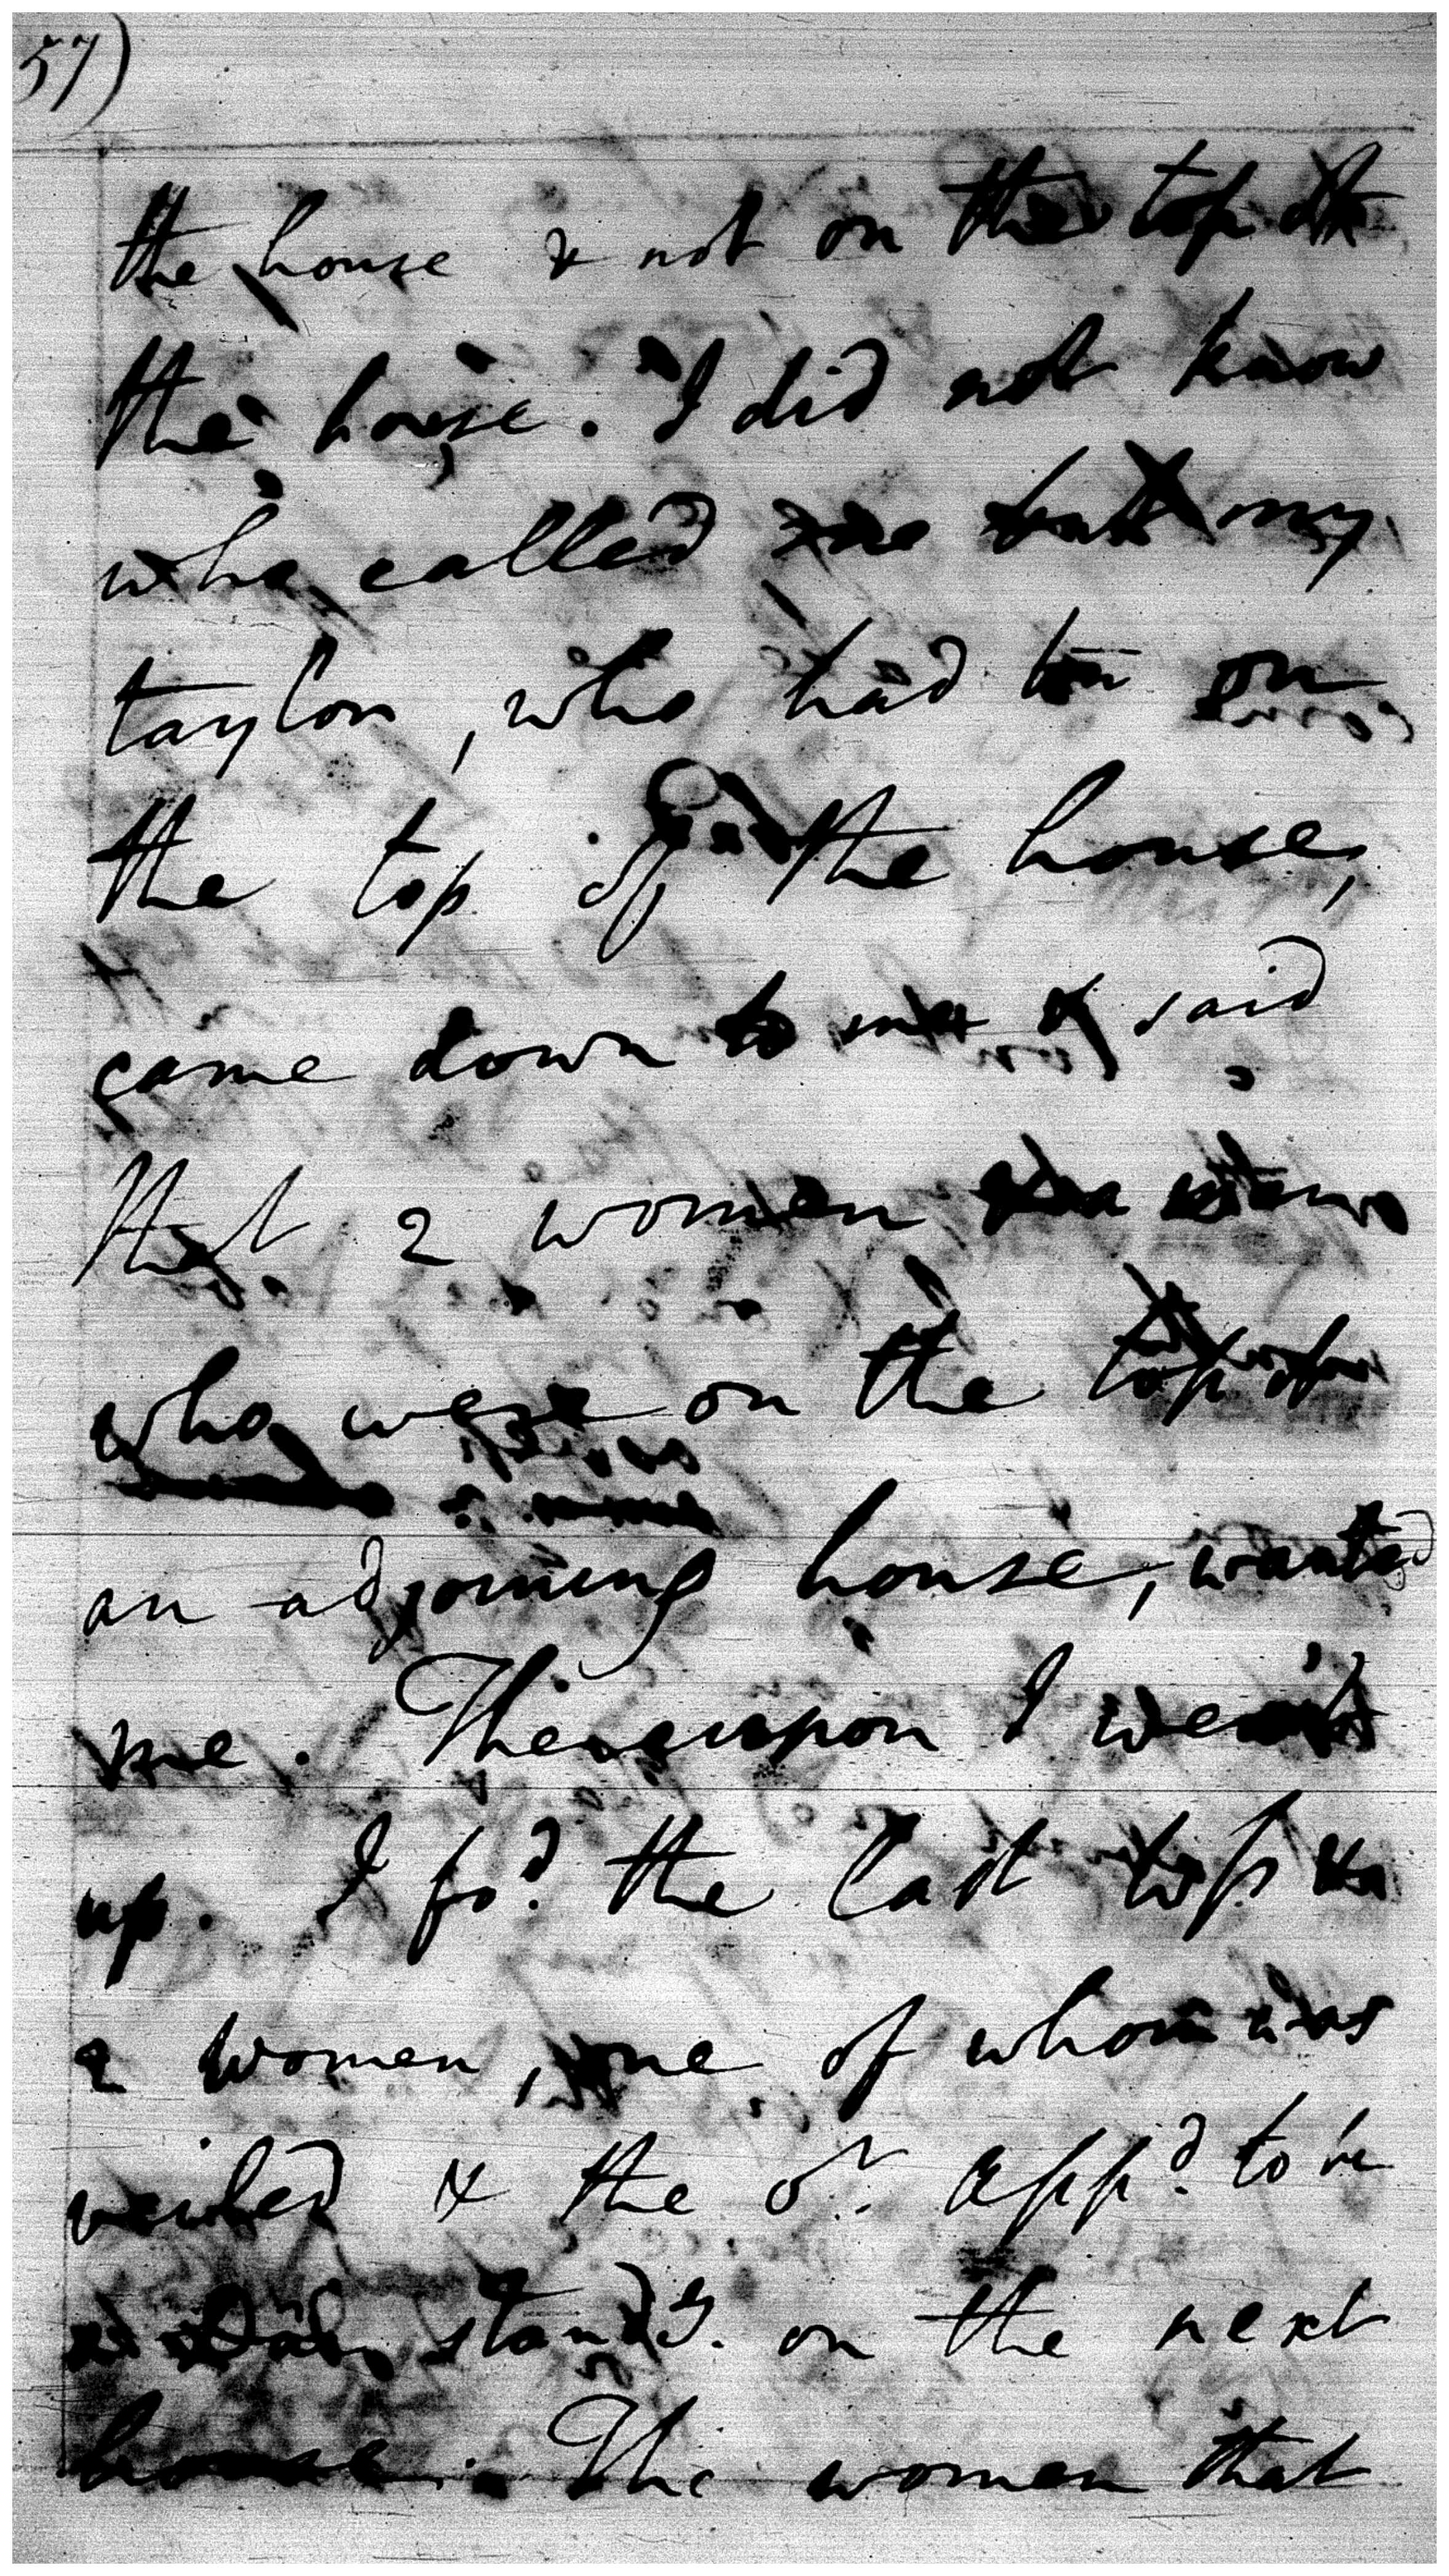 57)
the house & not on the top of
the house. I did not know
who called me but my
taylor, who had been on
the top of the house,
came down to me & said
that 2 women
who were on the top of
an adjoining house, wanted
me. Thereupon I went
up. I fo.d the last top
2 women, one of whom was
veiled & the o.r app.d to be
stand.g on the next
house. The women that